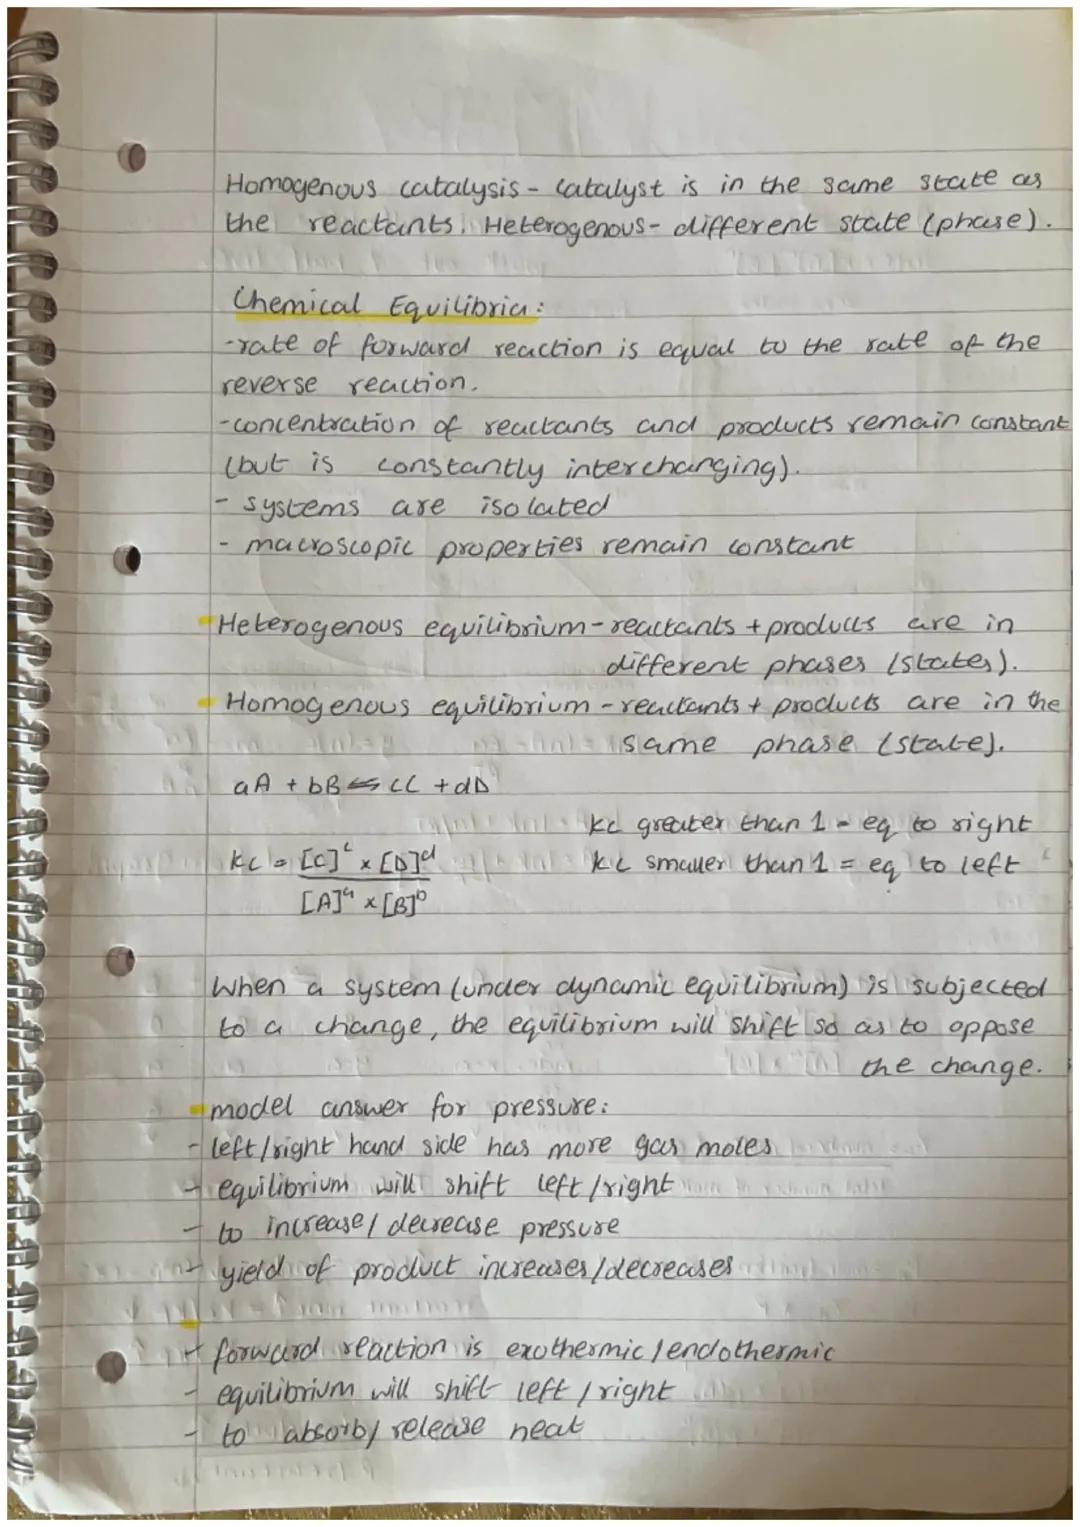 Homogenous catalysis - catalyst is in the same state as
the reactants. Heterogenous - different state (phase).
Chemical Equilibria:
-rate of forward reaction is equal to the rate of the
reverse reaction.
-concentration of reactants and products remain constant
(but is constantly interchanging).
- systems are isolated
- macroscopic properties remain constant
Heterogenous equilibrium - reactants + products are in
different phases (states).
Homogenous equilibrium - reactants + products are in the
same phase (state).
aA + bB ⇌ cC + dD
Kc greater than 1 = eq to right
Kc = [C]^c x [D]^d
Kc smaller than 1 = eq to left
[A]^a x [B]^b
When a system (under dynamic equilibrium) is subjected
to a change, the equilibrium will shift so as to oppose
the change.
model answer for pressure:
- left/right hand side has more gas moles
- equilibrium will shift left/right
- to increase/decrease pressure
- yield of product increases/decreases
- forward reaction is exothermic/endothermic
- equilibrium will shift left/right
- to absorb/release heat